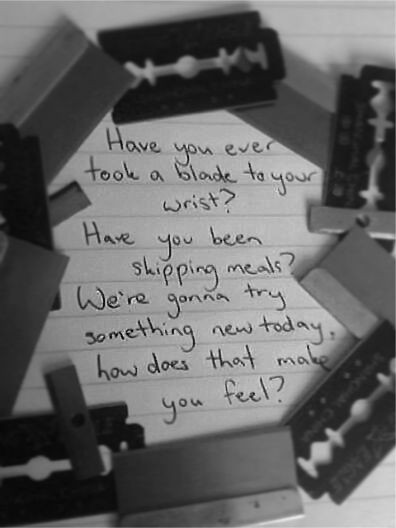 Have you ever
took a blade to your
wrist?
Have you been
skipping meals?
We're gonna try
something new today.
how does that make
you feel?